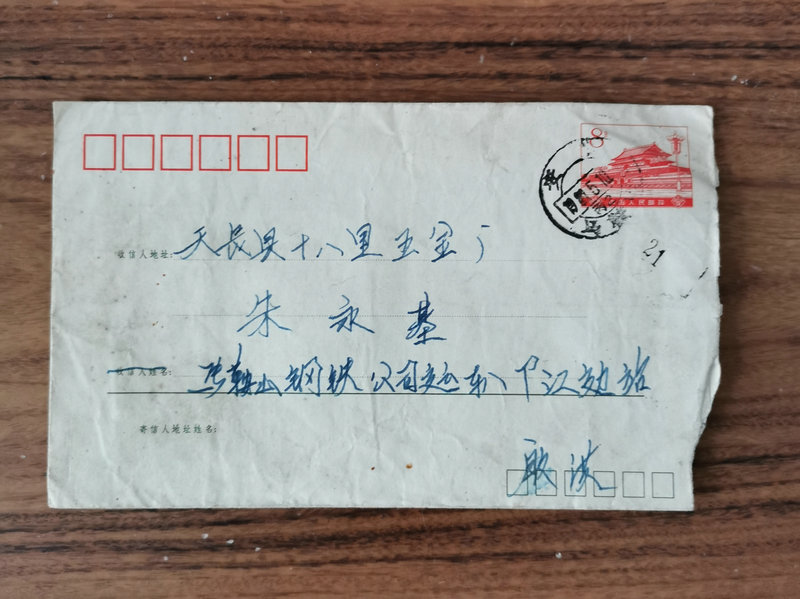 8
中国人民邮政
收信人地址: 天长县十八里五金厂
朱永基
21
收信人姓名:
马鞍山钢铁公司 江边站
寄信人地址姓名: